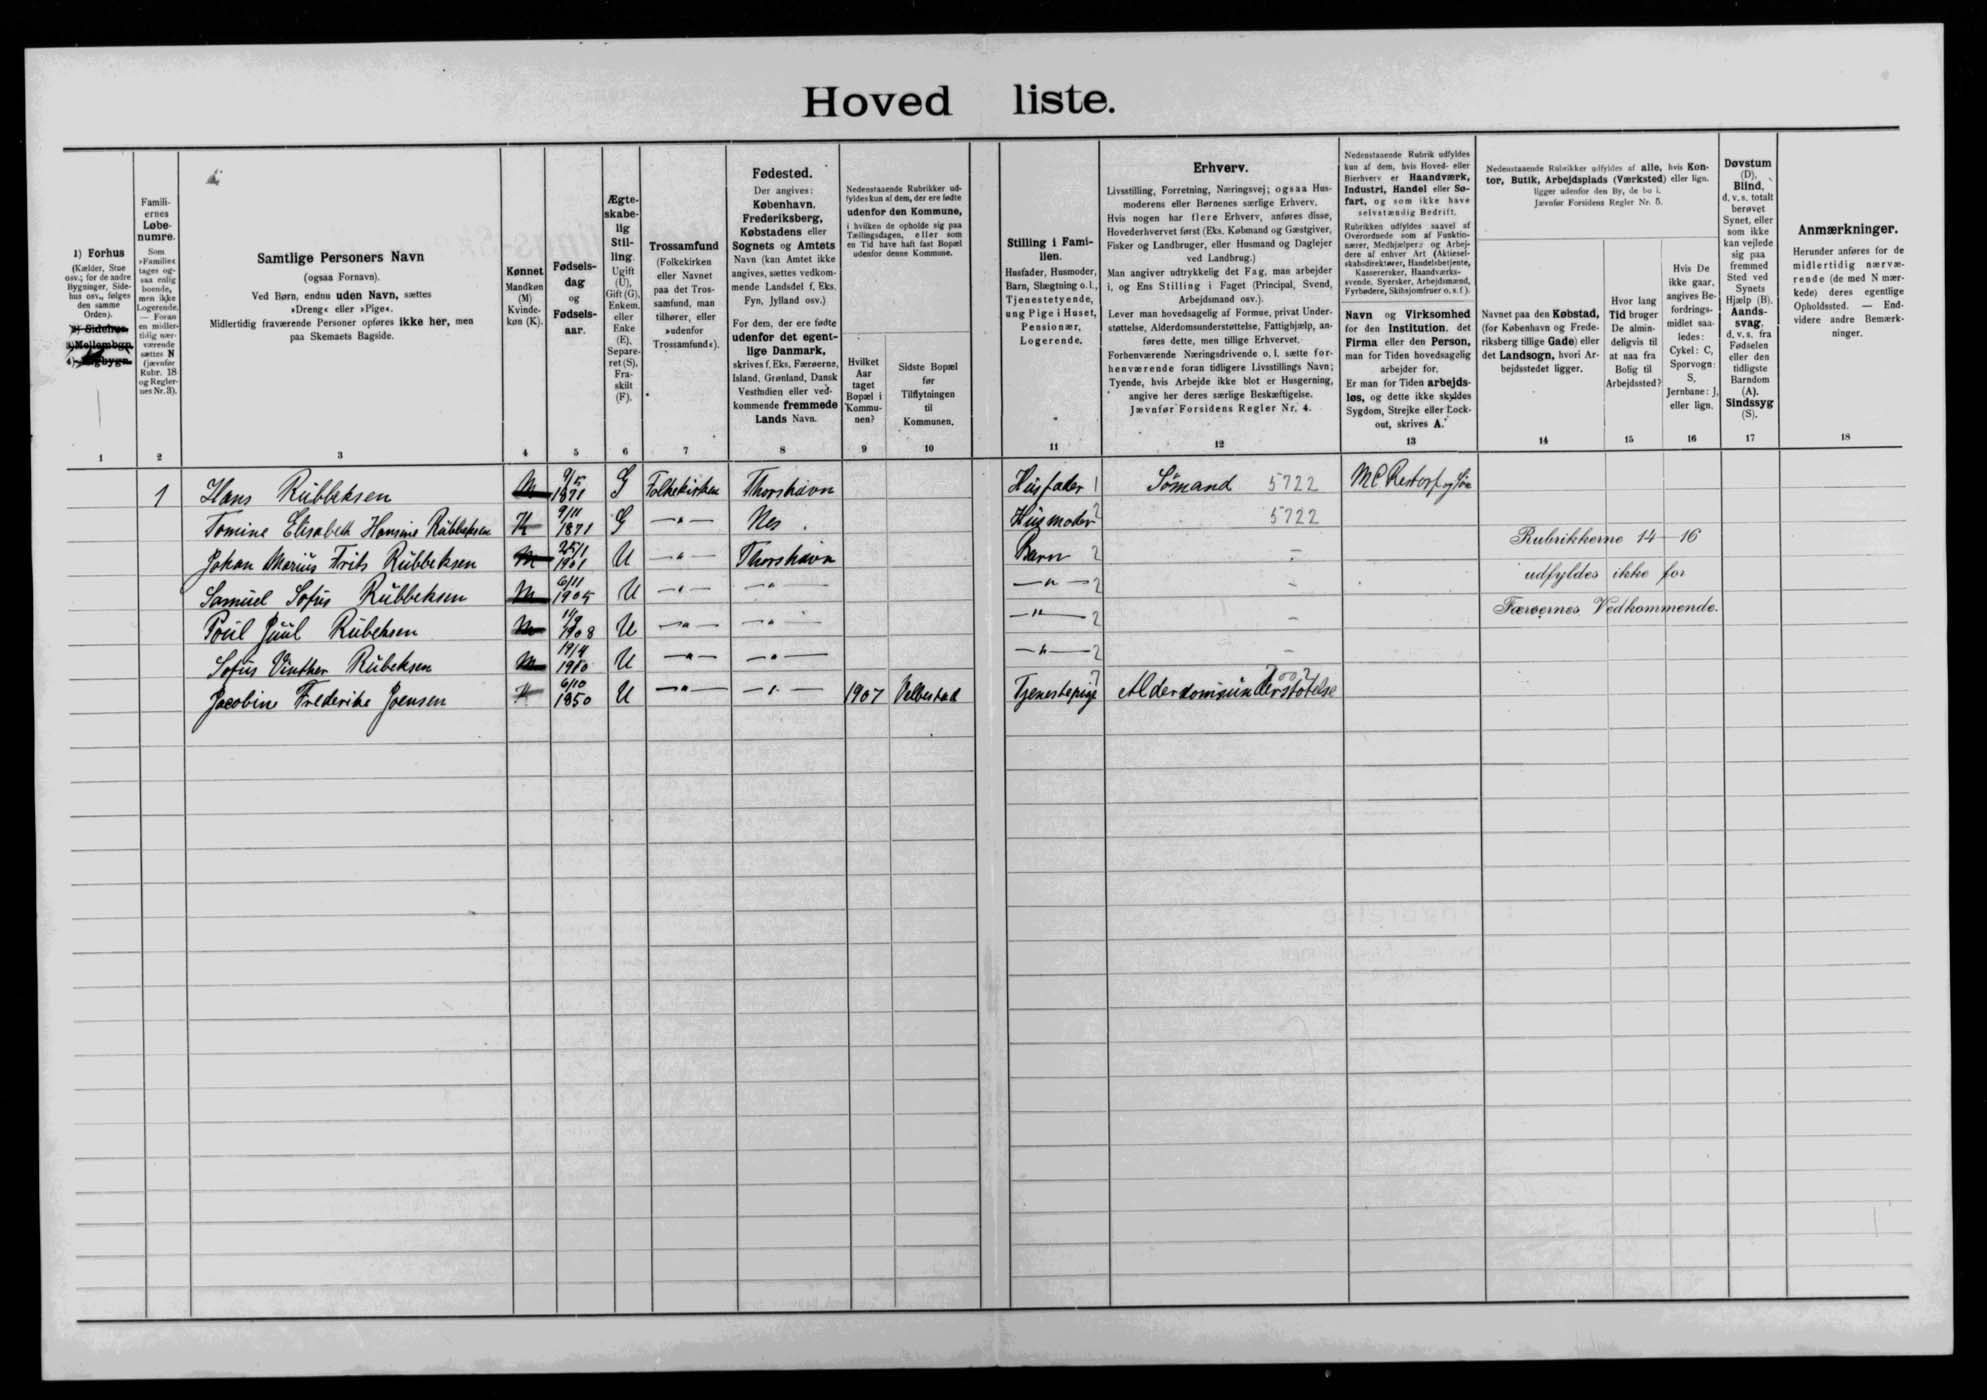 Hoved liste.
1) Forhus
(Kælder, Stue
osv.; for de andre
Bygninger, Side-
hus osv., følges
den samme
Orden).
2) Sidehus.
3) Mellembgn.
Famili-
ernes
Løbe-
numre.
Som
»Familie«
tages og-
saa enlig
boende,
men ikke
Logerende.
— Foran
en midler-
tidig nær-
værende
sættes N
(jævnfør
Rubr. 18
og Regler-
nes Nr. 3).
Samtlige Personers Navn
(ogsaa Fornavn).
Ved Børn, endnu uden Navn, sættes
»Dreng« eller »Pige«.
Midlertidig fraværende Personer opføres ikke her, men
paa Skemaets Bagside.
Kønnet
Mandkøn
(M)
Kvinde-
køn (K).
Fødsels-
dag
og
Fødsels-
aar.
Ægte-
skabe-
lig
Stil-
ling.
Ugift
(U),
Gift (G),
Enkem.
eller
Enke
(E),
Separe-
ret (S),
Fra-
skilt
(F).
Trossamfund
(Folkekirken
eller Navnet
paa det Tros-
samfund, man
tilhører, eller
»udenfor
Trossamfund«).
Fødested.
Der angives:
København,
Frederiksberg,
Købstadens eller
Sognets og Amtets
Navn (kan Amtet ikke
angives, sættes vedkom-
mende Landsdel f. Eks.
Fyn, Jylland osv.)
For dem, der ere fødte
udenfor det egent-
lige Danmark,
skrives f. Eks. Færøerne,
Island, Grønland, Dansk
Vestindien eller ved-
kommende fremmede
Lands Navn.
Nedenstaaende Rubrikker ud-
fyldes kun af dem, der ere fødte
udenfor den Kommune,
i hvilken de opholde sig paa
Tællingsdagen, eller som
en Tid have haft fast Bopæl
udenfor denne Kommune.
Hvilket
Aar
taget
Bopæl i
Kommu-
nen?
Sidste Bopæl
før
Tilflytningen
til
Kommunen.
Stilling i Fami-
lien.
Husfader, Husmoder,
Barn, Slægtning o. l.,
Tjenestetyende,
ung Pige i Huset,
Pensionær,
Logerende.
Erhverv.
Livsstilling, Forretning, Næringsvej; ogsaa Hus-
moderens eller Børnenes særlige Erhverv.
Hvis nogen har flere Erhverv, anføres disse,
Hovederhvervet først (Eks. Købmand og Gæstgiver,
Fisker og Landbruger, eller Husmand og Daglejer
ved Landbrug.)
Man angiver udtrykkelig det Fag, man arbejder
i, og Ens Stilling i Faget (Principal, Svend,
Arbejdsmand osv.).
Lever man hovedsagelig af Formue, privat Under-
støttelse, Alderdomsunderstøttelse, Fattighjælp, an-
føres dette, men tillige Erhvervet.
Forhenværende Næringsdrivende o. l. sætte for-
henværende foran tidligere Livsstillings Navn;
Tyende, hvis Arbejde ikke blot er Husgerning,
angive her deres særlige Beskæftigelse.
Jævnfør Forsidens Regler Nr. 4.
Nedenstaaende Rubrik udfyldes
kun af dem, hvis Hoved- eller
Bierhverv er Haandværk,
Industri, Handel eller Sø-
fart, og som ikke have
selvstændig Bedrift.
Rubrikken udfyldes saavel af
Overordnede som af Funktio-
nærer, Medhjælpere og Arbej-
dere af enhver Art (Aktiesel-
skabsdirektører, Handelsbetjente,
Kasserersker, Haandværks-
svende, Syersker, Arbejdsmænd,
Fyrbødere, Skibsjomfruer o. s. f.).
Navn og Virksomhed
for den Institution, det
Firma eller den Person,
man for Tiden hovedsagelig
arbejder for.
Er man for Tiden arbejds-
løs, og dette ikke skyldes
Sygdom, Strejke eller Lock-
out, skrives A.
Nedenstaaende Rubrikker udfyldes af alle, hvis Kon-
tor, Butik, Arbejdsplads (Værksted) eller lign.
ligger udenfor den By, de bo i.
Jævnfør Forsidens Regler Nr. 5.
Navnet paa den Købstad,
(for København og Frede-
riksberg tillige Gade) eller
det Landsogn, hvori Ar-
bejdsstedet ligger.
Hvor lang
Tid bruger
De almin-
deligvis til
at naa fra
Bolig til
Arbejdssted?
Hvis De
ikke gaar,
angives Be-
fordrings-
midlet saa-
ledes:
Cykel: C,
Sporvogn:
S,
Jernbane: J,
eller lign.
Døvstum
(D),
Blind,
d. v. s. totalt
berøvet
Synet, eller
som ikke
kan vejlede
sig paa
fremmed
Sted ved
Synets
Hjælp (B).
Aands-
svag,
d. v. s. fra
Fødselen
eller den
tidligste
Barndom
(A).
Sindssyg
(S).
Anmærkninger.
Herunder anføres for de
midlertidig nærvæ-
rende (de med N mær-
kede) deres egentlige
Opholdssted. — End-
videre andre Bemærk-
ninger.
1 2 3 4 5 6 7 8 9 10 11 12 13 14 15 16 17 18
1 Hans Rübbeksen M 9/5 1871 G Folkekirken Thorshavn Husfader 1 Sømand 5722 M C Restorf og Søn
Tomine Elisabeth Hansine Rübbeksen K 9/11 1871 G —"— Nes. Husmoder 2 5722
Johan Marius Frits Rübbeksen M 25/1 1901 U —"— Thorshavn Barn 2 -
Samuel Sofus Rübbeksen M 6/11 1905 U —"— —"— —"— 2 -
Poül Juul Rübeksen M 1908 U —"— —"— —"— 2 -
Sofus Vinther Rübeksen M 19/4 1910 U —"— —"— —"— 2 -
Jacobine Frederike Joensen K 6/10 1850 U —"— —"— 1907 Velbestad Tjenestepige 7 Alderdomsunderstøtelse
Rubrikkerne 14—16
udfyldes ikke for
Færøernes Vedkommende.